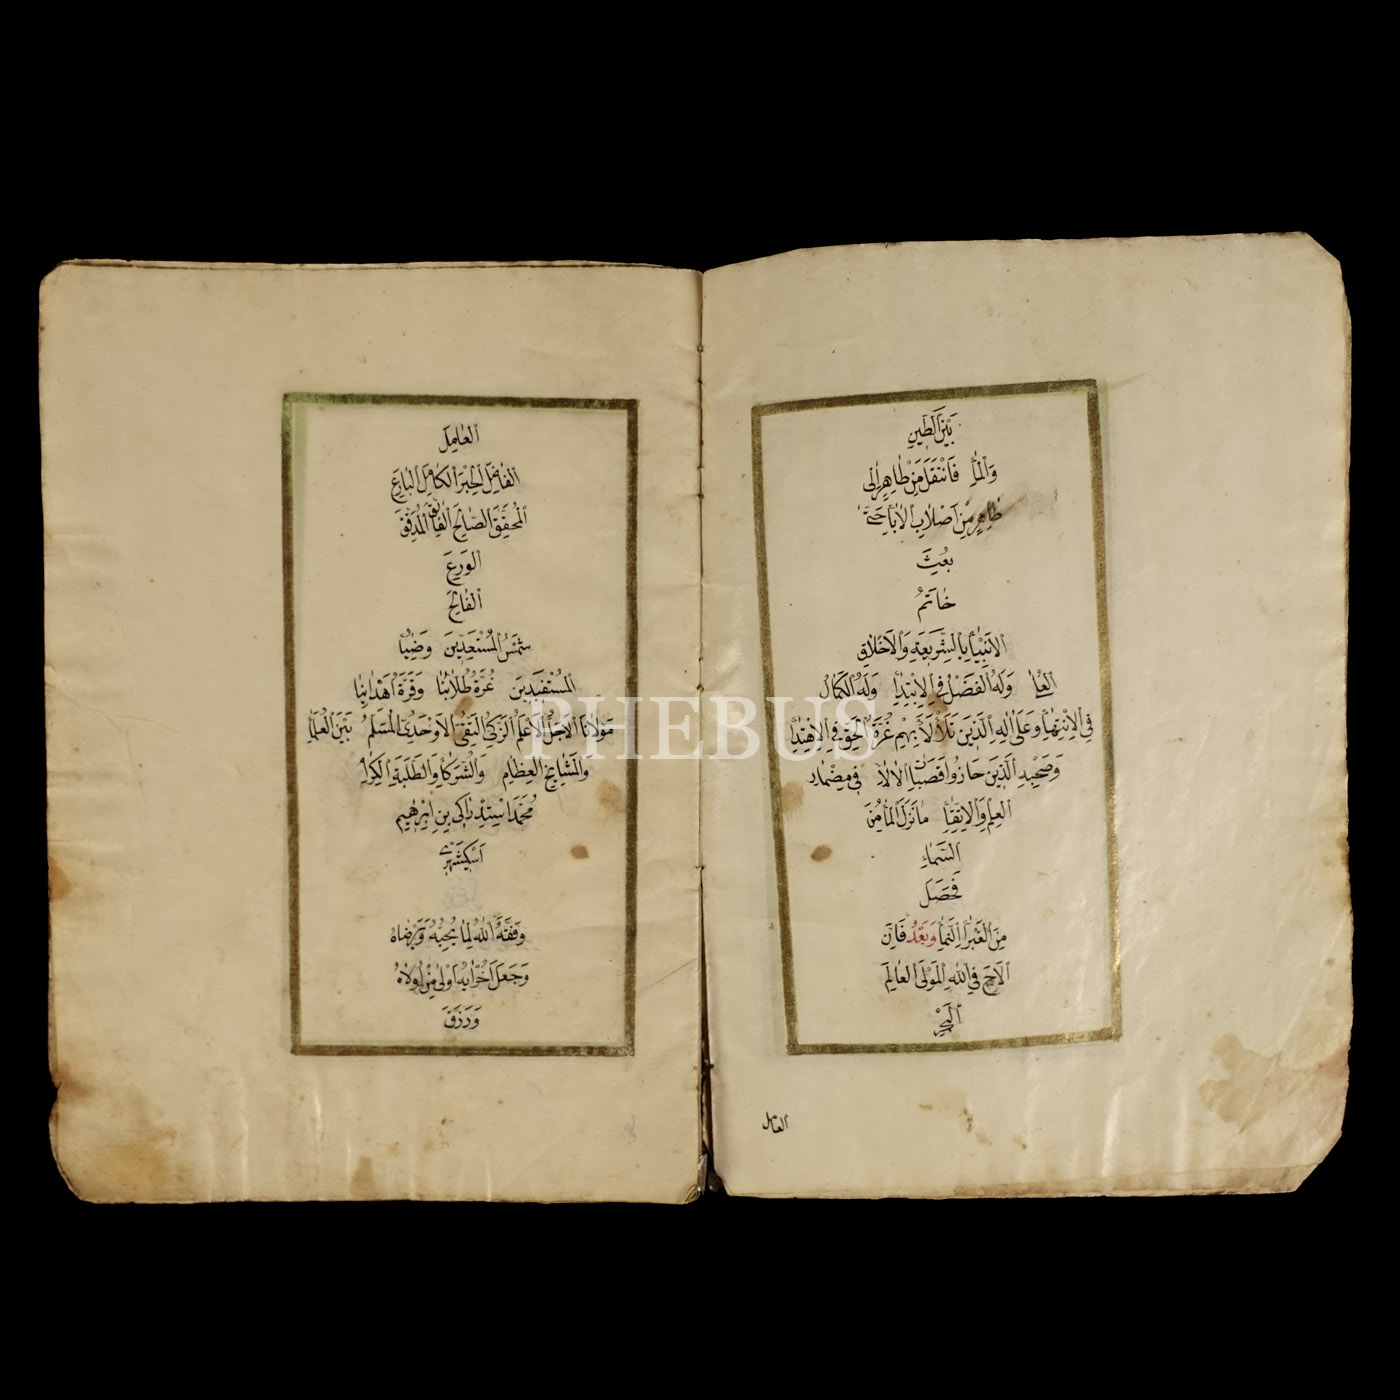 بَيْنَ الطِّينِ
وَالْمَاءِ فَانْتَقَلَ مِنْ طَاهِرٍ اِلٰى
طَاهِرٍ مِنْ اَصْلَابِ الْاٰبَاءِ حَتَّى
بُعِثَ
خَاتَمُ
الْاَنْبِيَاءِ بِالشَّرِيعَةِ وَالْاَخْلَاقِ
الْعُلْيَا وَلَهُ الْفَضْلُ فِي الْاِبْتِدَاءِ وَلَهُ الْكَمَالُ
فِي الْاِنْتِهَاءِ وَعَلٰى اٰلِهِ الَّذِينَ تَلَأْلَأَ بِهِمْ غُرَّةُ الْحَقِّ فِي الْاِهْتِدَاءِ
وَصَحْبِهِ الَّذِينَ حَازُوا قَصَبَاتِ فِي مِضْمَارِ
الْعِلْمِ وَالْاِتِّقَاءِ مَا نَزَلَ الْمَاءُ مِنَ
السَّمَاءِ
فَحَصَلَ
مِنَ الْغَبْرَاءِ النَّمَاءُ وَبَعْدُ فَاِنَّ
الْاَخَ فِي اللّٰهِ الْمَوْلَى الْعَالِمَ
الْبَحْرَ
العامل
الْعَامِلَ
الْفَاضِلَ الْحِبْرَ الْكَامِلَ الْبَارِعَ
الْمُحَقِّقَ الصَّالِحَ الْفَائِقَ الْمُدَقِّقَ
الْوَرِعَ
الْفَالِحَ
شَمْسُ الْمُسْتَعِدِّينَ وَضِيَاءُ
الْمُسْتَفِيدِينَ غُرَّةُ طُلَّابِنَا وَقُرَّةُ اَهْدَابِنَا
مَوْلَانَا الْاَجَلُّ الْاَعْلَمُ الزَّكِيُّ التَّقِيُّ الْاَوْحَدِيُّ الْمُسَلَّمُ بَيْنَ الْعُلَمَاءِ
وَالْمَشَايِخِ الْعِظَامِ وَالشُّرَكَاءِ وَالطَّلَبَةِ الْكِرَامِ
مُحَمَّدْ بْنِ اِبْرٰهِيمَ
اَسْكِيشَهْرِي
وَفَّقَهُ اللّٰهُ لِمَا يُحِبُّهُ وَيَرْضَاهُ
وَجَعَلَ اُخْرَايَهُ اَوْلٰى مِنْ اُولَاهُ
وَرَزَقَ
PHEBUS